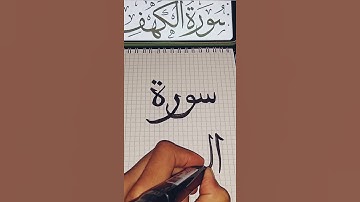 سورة الكهف
سورة
ال